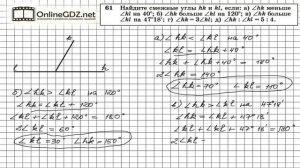 OnlineGDZ.net
61 Найдите смежные углы hk и kl, если: а) ∠hk меньше
∠kl на 40°; б) ∠hk больше ∠kl на 120°; в) ∠hk больше
∠kl на 47°18'; г) ∠hk = 3∠kl; д) ∠hk : ∠kl = 5 : 4.
l
h
k
а) ∠hk < ∠kl на 40°
∠kl = ∠hk + 40°
∠hk + ∠hk + 40° = 180°
2∠hk = 140°
∠hk = 70° ∠kl = 110°
б) ∠hk > ∠kl на 120°
∠hk = ∠kl + 120°
∠kl + ∠kl + 120° = 180°
2∠kl = 60°
∠kl = 30° ∠hk = 150°
в) ∠hk > ∠kl на 47°18'
∠hk = ∠kl + 47°18'
∠kl + ∠kl + 47°18' = 180°
2∠kl =